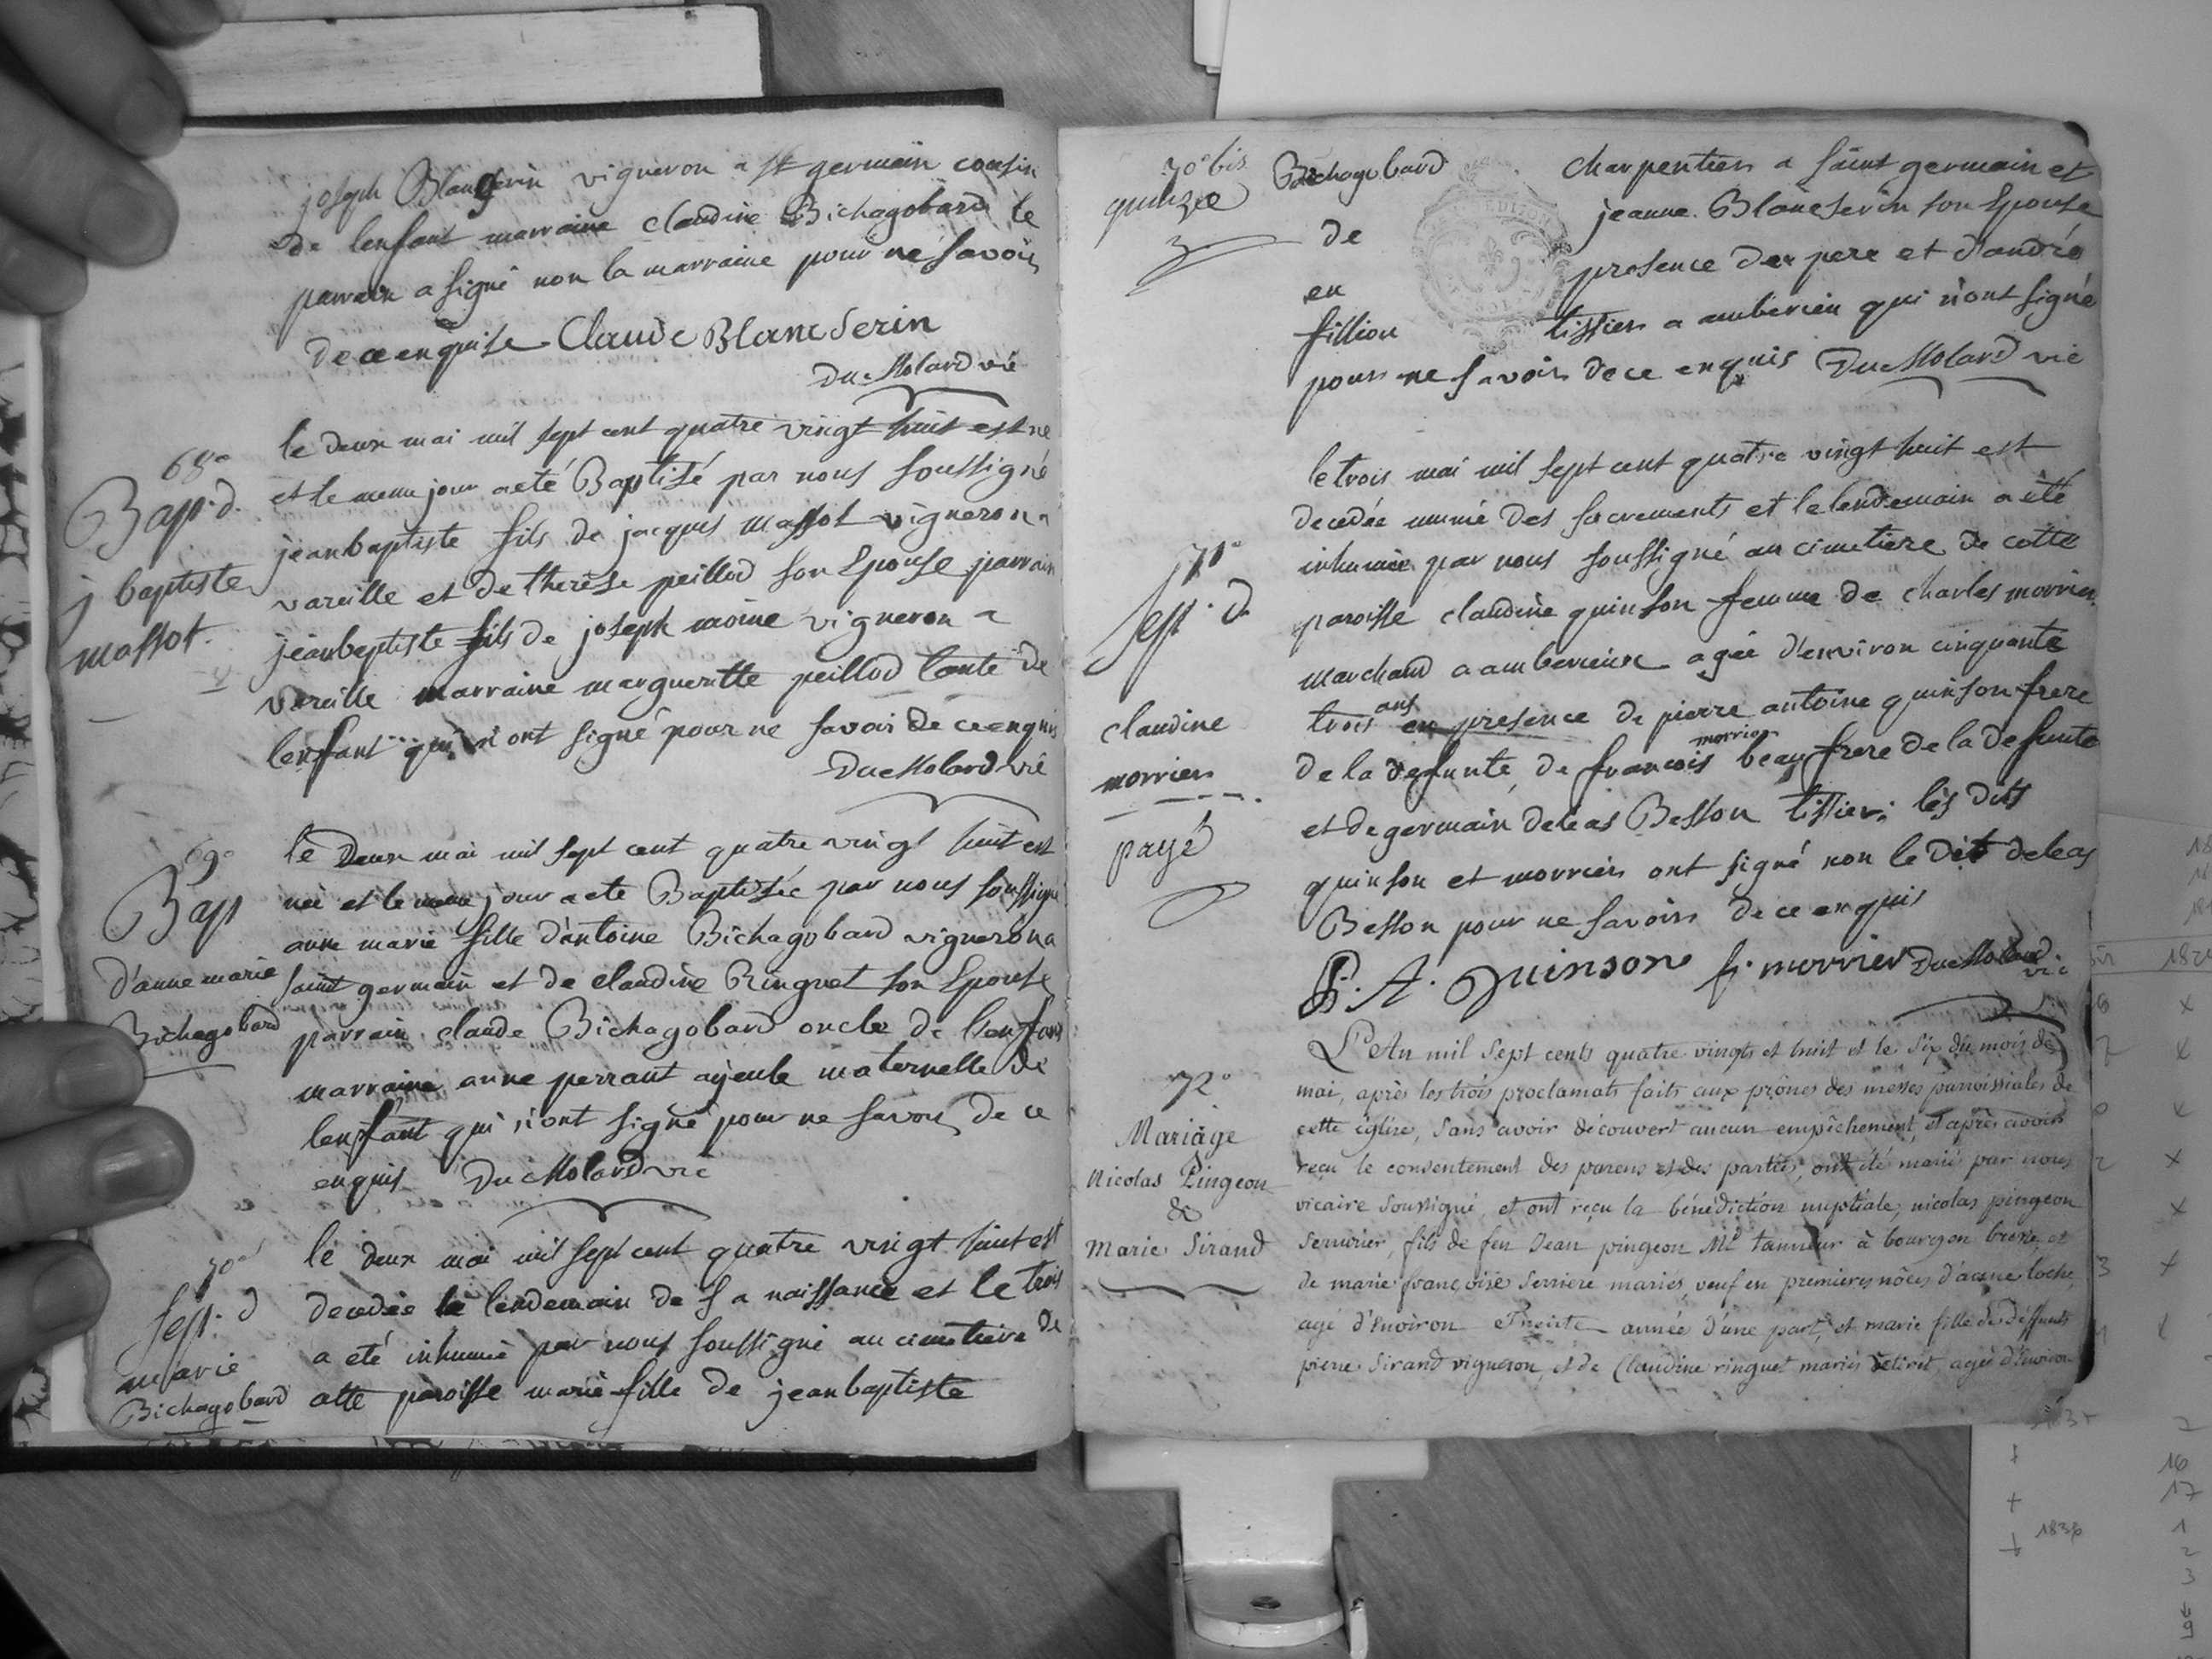 joseph Blancserin vigneron a st germain cousin
de lenfant marraine claudine Bichagobard le
parrain a signé non la marraine pour ne savoir
de ce enquise Claude Blanc Serin
DucMolard vic
68e
Bap. d.
j baptiste
massot.
le deux mai mil sept cent quatre vingt huit est né
et le meme jour a eté Baptisé par nous soussigné
jeanbaptiste fils de jacques massot vigneron a
vareille et de therèse peillod son Epouse parrain
jeanbaptiste fils de joseph moine vigneron a
vareille marraine margueritte peillod tante de
lenfant qui n'ont signé pour ne savoir de ce enquis
DucMolard vic
69e
Bap
d'anne marie
Bichagobard
le Deux mai mil sept cent quatre vingt huit est
née et le meme jour a ete Baptisée par nous soussigné
anne marie fille d'antoine Bichagobard vigneron a
saint germain et de claudine Ringuet son Epouse
parrain claude Bichagobard oncle de l'enfant
marraine anne perrant ayeule maternelle de
lenfant qui n'ont signé pour ne savoir de ce
enquis DucMolard vic
70e
sep. d
marie
Bichagobard
le deux mai mil sept cent quatre vingt huit est
decedée le lendemain de sa naissance et le trois
a eté inhumée par nous soussigné au cimetiere de
cette paroisse marie fille de jeanbaptiste
70e bis
quinze
Bichagobard
de
en
fillion
charpentier a saint germain et
jeanne Blancserin son Epouse
presence der pere et d'andré
tissier a amberieu qui n'ont signé
pour ne savoir de ce enquis DucMolard vic
71e
sep. d
claudine
morrier
payé
le trois mai mil sept cent quatre vingt huit est
decedée munie des sacrements et le lendemain a eté
inhumée par nous soussigné au cimetiere de cette
paroisse claudine quinson femme de charles morrier
marchand a amberieux agée d'environ cinquante
trois ans en presence de pierre antoine quinson frere
de la defunte, de francois morrier beau frere de la defunte
et de germain deleas Besson tissier; les dits
quinson et morrier ont signé non le dit deleas
Besson pour ne savoir de ce enquis
P. A. Quinson f. morrier DucMolard vic
72e
Mariage
Nicolas Pingeon
&
Marie Sirand
L'An mil sept cents quatre vingts et huit et le six du mois de
mai, après les trois proclamats faits aux prônes des messes parroissiales de
cette église, sans avoir découvert aucun empêchement, et après avoir
reçu le consentement des parens et des parties, ont été mariés par nous
vicaire soussigné, et ont reçu la bénédiction nuptiale, nicolas pingeon
serrurier, fils de feu Jean pingeon Md tanneur à bourg en bresse, et
de marie françoise serriere mariés, veuf en premieres nôces d'anne loche,
agé d'environ Trente année d'une part, et marie fille des déffunts
pierre Sirand vigneron, et de Claudine ringuet mariés agée d'environ